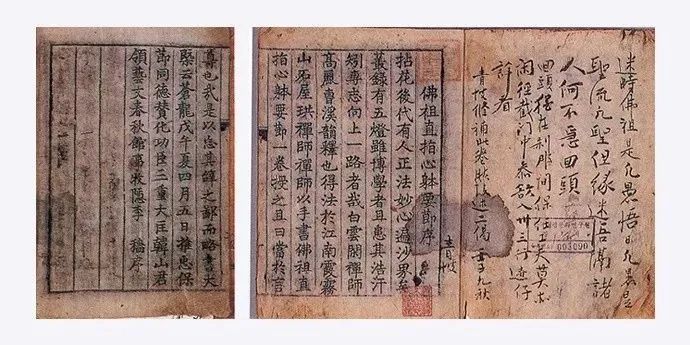 迷時佛祖是凡愚悟日凡愚是
聖流凡聖但緣迷悟隔諸
人何不急回頭
回頭在刹那間保任工夫莫
閑徑截門中參入卅三仔
許看
青坡修補此卷述二偈 壬子九秋
003090
佛祖直指心躰要節序
拈花後代有人正法妙心遍沙界矣
叢錄有五燈雖博學者且患其浩汗
矧專志向上一路者哉白雲閑禪師
高麗曹溪韻釋也得法於江南霞霧
山石屋珙禪師禪師以手書佛祖直
指心躰要節一卷授之且曰當於言
青坡
尊也我是以忘其辭之鄙而略書夫
槩云蒼龍戊午夏四月五日推忠保
節同德贊化功臣三重大匡韓山君
領藝文春秋館事牧隱李 穡序